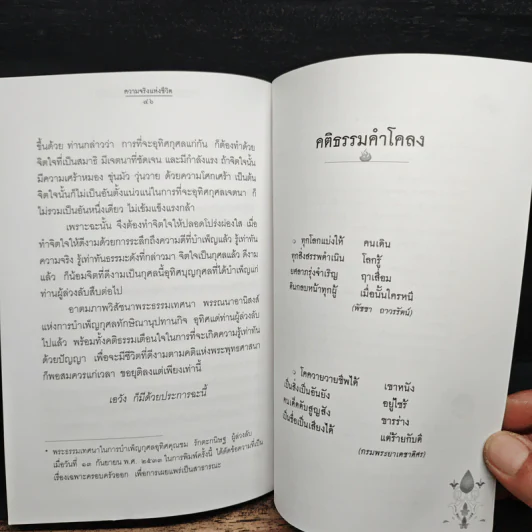 ความจริงแห่งชีวิต
๔๖
ขึ้นด้วย ท่านกล่าวว่า การที่จะอุทิศกุศลแก่กัน ก็ต้องทำด้วย
จิตใจที่เป็นสมาธิ มีเจตนาที่ชัดเจน และมีกำลังแรง ถ้าจิตใจนั้น
มีความเศร้าหมอง ขุ่นมัว วุ่นวาย ด้วยความโศกเศร้า เป็นต้น
จิตใจนั้นก็ไม่เป็นอันตั้งแน่วแน่ในการที่จะอุทิศกุศลเจตนา ก็
ไม่รวมเป็นอันหนึ่งเดียว ไม่เข้มแข็งแรงกล้า
เพราะฉะนั้น จึงต้องทำจิตใจให้ปลอดโปร่งผ่องใส เมื่อ
ทำจิตใจให้ดีงามด้วยการระลึกถึงความดีที่บำเพ็ญแล้ว รู้เท่าทัน
ความจริง รู้เท่าทันธรรมะดังที่กล่าวมา จิตใจเป็นกุศลแล้ว ดีงาม
แล้ว ก็น้อมจิตที่ดีงามเป็นกุศลนี้อุทิศบุญกุศลที่ได้บำเพ็ญแก่
ท่านผู้ล่วงลับสืบต่อไป
อาตมภาพวิสัชนาพระธรรมเทศนา พรรณนาอานิสงส์
แห่งการบำเพ็ญกุศลทักษิณานุปทานกิจ อุทิศแด่ท่านผู้ล่วงลับ
ไปแล้ว พร้อมทั้งคติธรรมเตือนใจในการที่จะเกิดความรู้เท่าทัน
ด้วยปัญญา เพื่อจะมีชีวิตที่ดีงามตามคติแห่งพระพุทธศาสนา
ก็พอสมควรแก่เวลา ขอยุติลงแต่เพียงเท่านี้
เอวัง ก็มีด้วยประการฉะนี้
* พระธรรมเทศนาในการบำเพ็ญกุศลอุทิศคุณชม รักตะกนิษฐ ผู้ล่วงลับ
เมื่อวันที่ ๑๙ กันยายน พ.ศ. ๒๕๓๓ ในการพิมพ์ครั้งนี้ ได้ตัดข้อความที่เป็น
เรื่องเฉพาะครอบครัวออก เพื่อการเผยแพร่เป็นสาธารณะ
คติธรรมคำโคลง
๏ ทุกโลกแบ่งให้ คนเดิน
ทุกสิ่งสรรพดำเนิน โลกรู้
ยศลาภรุ่งจำเริญ ฤาเสื่อม
ดินกลบหน้าทุกผู้ เมื่อนั้นใครหนี
(พัชชา ถาวรรัตน์)
๏ โคควายวายชีพได้ เขาหนัง
เป็นสิ่งเป็นอันยัง อยู่ไซร้
คนเด็ดดับสูญสัง ขารร่าง
เป็นชื่อเป็นเสียงได้ แต่ร้ายกับดี
(กรมพระยาเดชาดิศร)